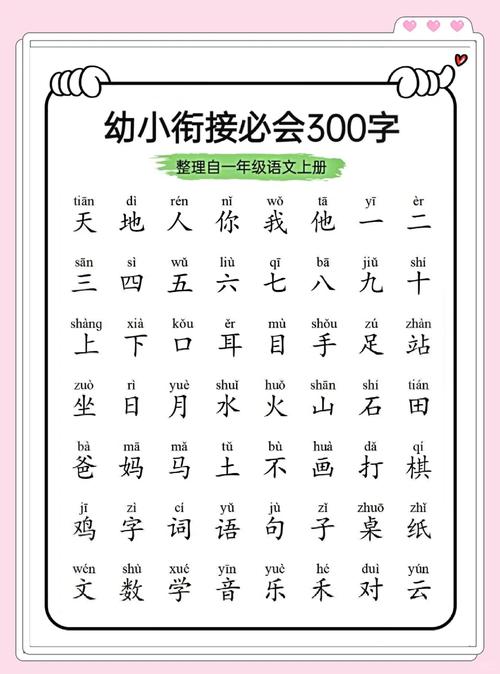 幼小衔接必会300字
整理自一年级语文上册
tiān dì rén nǐ wǒ tā yī èr
天 地 人 你 我 他 一 二
sān sì wǔ liù qī bā jiǔ shí
三 四 五 六 七 八 九 十
shàng xià kǒu ěr mù shǒu zú zhàn
上 下 口 耳 目 手 足 站
zuò rì yuè shuǐ huǒ shān shí tián
坐 日 月 水 火 山 石 田
bà mā mǎ tǔ bù huà dǎ qí
爸 妈 马 土 不 画 打 棋
jī zì cí yǔ jù zǐ zhuō zhǐ
鸡 字 词 语 句 子 桌 纸
wén shù xué yīn yuè hé duì yún
文 数 学 音 乐 禾 对 云